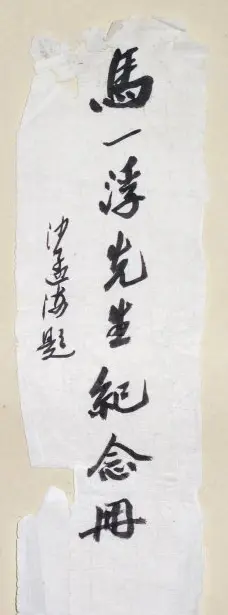 馬一浮先生紀念冊
沙孟海題